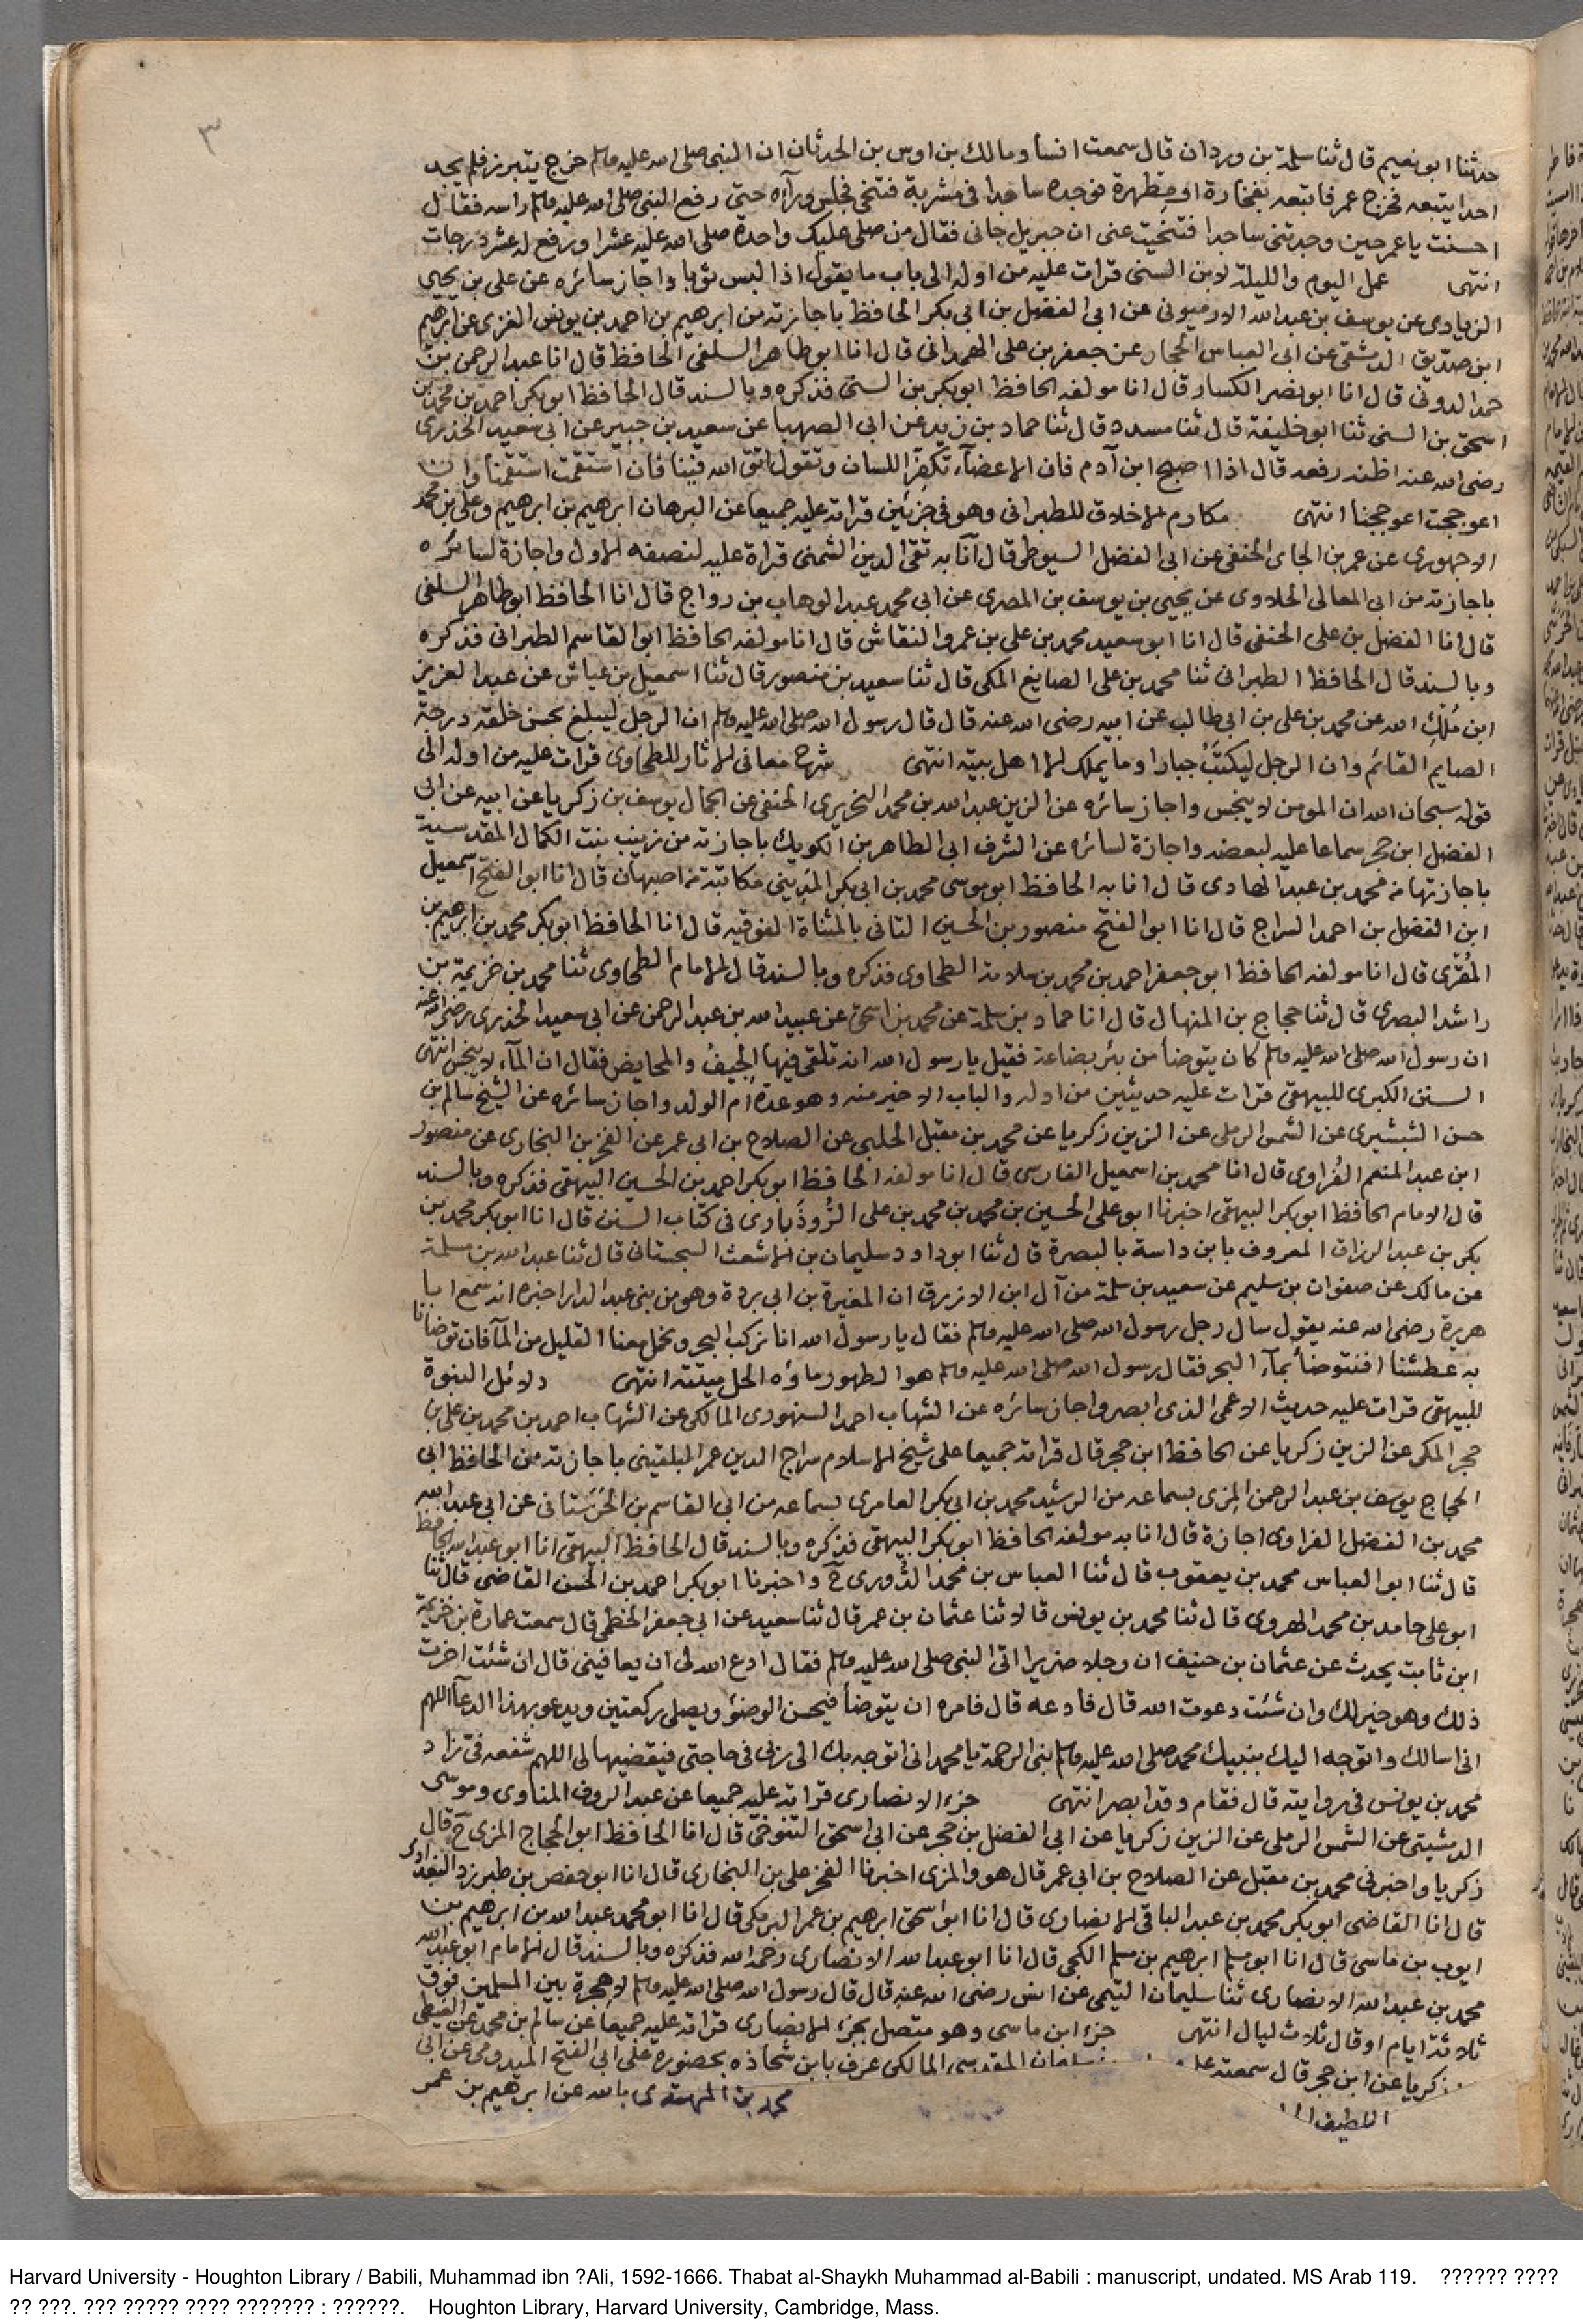 ٣
حدثنا ابو نعيم قال ثنا سلمة بن وردان قال سمعت انسا ومالك بن اوس بن الحدثان ان النبي صلى الله عليه وسلم خرج يتبرز فلم يجد
احدا يتبعه فخرج عمر فاتبعه بفخارة او مطهرة فوجده ساجدا في مشربة فتنحى فجلس ورآءه حتى رفع النبي صلى الله عليه وسلم راسه فقال
احسنت يا عمر حين وجدتني ساجدا فتنحيت عني ان جبريل جاني فقال من صلى عليك واحدة صلى الله عليه عشرا ورفع له عشر درجات
انتهى عمل اليوم والليلة لابن السني قرات عليه من اوله الى باب ما يقول اذا لبس ثوبا واجاز سائره عن علي بن يحيى
الزيادي عن يوسف بن عبد الله الارميوني عن ابي الفضل بن ابي بكر الحافظ باجازته من ابرهيم بن احمد بن يونس الغزي عن ابرهيم
ابن صديق الدمشقي عن ابي العباس الحجار عن جعفر بن علي الهمداني قال انا ابو طاهر السلفي الحافظ قال انا عبد الرحمن بن
حمد الدوني قال انا ابو نصر الكسار قال انا مولفه الحافظ ابو بكر بن السني فذكره وبالسند قال الحافظ ابو بكر احمد بن محمد بن
اسحق بن السني ثنا ابو خليفة قال ثنا مسدد قال ثنا حماد بن زيد عن ابي الصهبا عن سعيد بن جبير عن ابي سعيد الخدري
رضي الله عنه اظنه رفعه قال اذا اصبح ابن آدم فان الاعضآء تكفر اللسان وتقول اتق الله فينا فان استقمت استقمنا وان
اعوججت اعوججنا انتهى مكارم الاخلاق للطبراني وهو في جزئين قراته عليه جميعا عن البرهان ابرهيم بن ابرهيم وعلي بن محمد
الاجهوري عن عمر بن الجاي الحنفي عن ابي الفضل السيوطي قال انا به تقي الدين الشمني قراة عليه لنصفه الاول واجازة لسائره
باجازته من ابي المعالي الحلاوي عن يحيى بن يوسف بن المصري عن ابي محمد عبد الوهاب بن رواج قال انا الحافظ ابو طاهر السلفي
قال انا الفضل بن علي الحنفي قال انا ابو سعيد محمد بن علي بن عمرو النقاش قال انا مولفه الحافظ ابو القاسم الطبراني فذكره
وبالسند قال الحافظ الطبراني ثنا محمد بن علي الصايغ المكي قال ثنا سعيد بن منصور قال ثنا اسمعيل بن عياش عن عبد العزيز
ابن عبد الله عن محمد بن علي بن ابي طالب عن ابيه رضي الله عنه قال قال رسول الله صلى الله عليه وسلم ان الرجل ليبلغ بحسن خلقه درجة
الصايم القائم وان الرجل ليكتب جبارا وما يملك الا اهل بيته انتهى شرح معاني الاثار للطحاوي قرات عليه من اوله الى
قوله سبحان الله ان المومن لا ينجس واجاز سائره عن الزين عبد الله بن محمد النحريري الحنفي عن الجمال يوسف بن زكريا عن ابيه عن ابي
الفضل ابن حجر سماعا عليه لبعضه واجازة لسائره عن الشرف ابي الطاهر بن الكويك باجازته من زينب بنت الكمال المقدسية
باجازتها من محمد بن عبد الهادي قال انا به الحافظ ابو موسى محمد بن ابي بكر المديني مكاتبة من اصبهان قال انا ابو الفتح اسمعيل
ابن الفضل بن احمد السراج قال انا ابو الفتح منصور بن الحسين التاني بالمثناة الفوقيه قال انا الحافظ ابو بكر محمد بن ابرهيم بن
المقرى قال انا مولفه الحافظ ابو جعفر احمد بن محمد بن سلامة الطحاوي فذكره وبالسند قال الامام الطحاوي ثنا محمد بن خزيمة بن
راشد البصري قال ثنا حجاج بن المنهال قال انا حماد بن سلمة عن محمد بن اسحق عن عبيد الله بن عبد الرحمن عن ابي سعيد الخدري رضي الله عنه
ان رسول الله صلى الله عليه وسلم كان يتوضأ من بئر بضاعة فقيل يا رسول الله انه تلقى فيها الجيف والمحايض فقال ان المآء لا ينجس انتهى
السنن الكبرى للبيهقي قرات عليه حديثين من اوله والباب الاخير منه وهو عدة ام الولد واجاز سائره عن الشيخ سالم بن
حسن الشبشيري عن الشمس الرملي عن الزين زكريا عن محمد بن مقبل الحلبي عن الصلاح بن ابي عمر عن الفخر بن البخاري عن منصور
ابن عبد المنعم الفراوي قال انا محمد بن اسمعيل الفارسي قال انا مولفه الحافظ ابو بكر احمد بن الحسين البيهقي فذكره وبالسند
قال الامام الحافظ ابو بكر البيهقي اخبرنا ابو علي الحسين بن محمد بن محمد بن علي الروذباري في كتاب السنن قال انا ابو بكر محمد بن
بكر بن عبد الرزاق المعروف بابن داسة بالبصرة قال ثنا ابو داود سليمان بن الاشعث السجستاني قال ثنا عبد الله بن مسلمة
عن مالك عن صفوان بن سليم عن سعيد بن سلمة من آل ابن الازرق ان المغيرة بن ابي بردة وهو من بني عبد الدار اخبره انه سمع ابا
هريرة رضي الله عنه يقول سال رجل رسول الله صلى الله عليه وسلم فقال يا رسول الله انا نركب البحر ونحمل معنا القليل من المآ فان توضانا
به عطشنا افنتوضأ بمآء البحر فقال رسول الله صلى الله عليه وسلم هو الطهور ماؤه الحل ميتته انتهى دلائل النبوة
للبيهقي قرات عليه حديث الاعمى الذي ابصر واجاز سائره عن الشهاب احمد السنهوري المالكي عن الشهاب احمد بن محمد بن علي بن
حجر المكي عن الزين زكريا عن الحافظ ابن حجر قال قراته جميعا على شيخ الاسلام سراج الدين عمر البلقيني باجازته من الحافظ ابي
الحجاج يوسف بن عبد الرحمن المزي بسماعه من الرشيد محمد بن ابي بكر العامري بسماعه من ابي القاسم بن الحرستاني عن ابي عبد الله
محمد بن الفضل الفراوي اجازة قال انا به مولفه الحافظ ابو بكر البيهقي فذكره وبالسند قال الحافظ البيهقي انا ابو عبد الله الحافظ
قال ثنا ابو العباس محمد بن يعقوب قال ثنا العباس بن محمد الدوري ح واخبرنا ابو بكر احمد بن الحسن القاضي قال ثنا
ابو علي حامد بن محمد الهروي قال ثنا محمد بن يونس قالا ثنا عثمان بن عمر قال ثنا سعيد عن ابي جعفر الخطمي قال سمعت عمارة بن خزيمة
ابن ثابت يحدث عن عثمان بن حنيف ان رجلا ضريرا اتى النبي صلى الله عليه وسلم فقال ادع الله لي ان يعافيني قال ان شئت اخرت
ذلك وهو خير لك وان شئت دعوت الله قال فادعه قال فامره ان يتوضأ فيحسن الوضوء ويصلي ركعتين ويدعو بهذا الدعآ اللهم
اني اسالك واتوجه اليك بنبيك محمد صلى الله عليه وسلم نبي الرحمة يا محمد اني اتوجه بك الى ربي في حاجتي فيقضيها لي اللهم شفعه في زاد
محمد بن يونس في روايته قال فقام وقد ابصر انتهى جزء الانصاري قراته عليه جميعا عن عبد الروف المناوي وموسى
الدمشيتي عن الشمس الرملي عن الزين زكريا عن ابي الفضل بن حجر عن ابي اسحق التنوخي قال انا الحافظ ابو الحجاج المزي ح قال
زكريا واخبرني محمد بن مقبل عن الصلاح بن ابي عمر قال هو والمزي اخبرنا الفخر علي بن البخاري قال انا ابو حفص بن طبرزد البغدادي
قال انا القاضي ابو بكر محمد بن عبد الباقي الانصاري قال انا ابو اسحق ابرهيم بن عمر البرمكي قال انا ابو محمد عبد الله بن ابرهيم بن
ايوب بن ماسي قال انا ابو مسلم ابرهيم بن مسلم الكجي قال انا ابو عبد الله الانصاري رحمه الله فذكره وبالسند قال الامام ابو عبد الله
محمد بن عبد الله الانصاري ثنا سليمان التيمي عن انس رضي الله عنه قال قال رسول الله صلى الله عليه وسلم لا هجرة بين المسلمين فوق
ثلاثة ايام او قال ثلاث ليال انتهى جزء ابن ماسي وهو متصل بجزء الانصاري قراته عليه جميعا عن سالم بن محمد عن الغيطي
زكريا عن ابن حجر قال سمعته على سلمان المقدسي المالكي عرف بابن شحاذه بحضوره على ابي الفتح الميدومي عن ابي
اللطيف محمد بن المهتدي بالله عن ابرهيم بن عمر
Harvard University - Houghton Library / Babili, Muhammad ibn ?Ali, 1592-1666. Thabat al-Shaykh Muhammad al-Babili : manuscript, undated. MS Arab 119. ?????? ????
?? ???. ??? ????? ???? ??????? : ??????. Houghton Library, Harvard University, Cambridge, Mass.